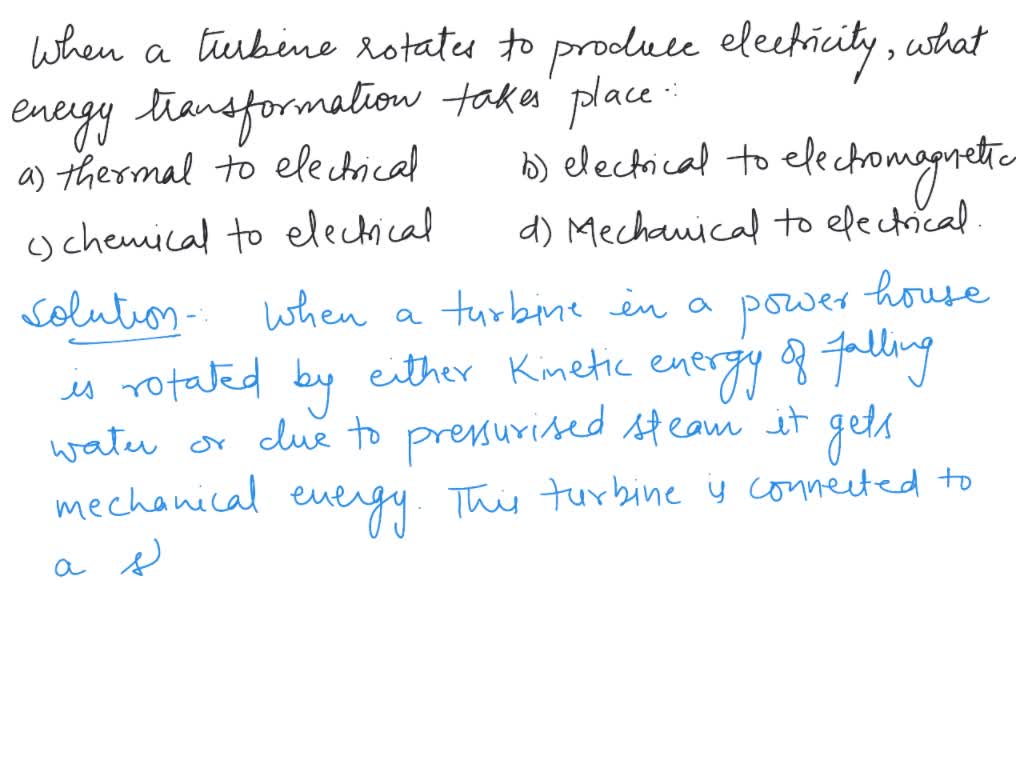 When a turbine rotates to produce electricity, what
energy transformation takes place :
a) thermal to electrical b) electrical to electromagnetic
c) chemical to electrical d) Mechanical to electrical.
Solution -: When a turbine in a power house
is rotated by either Kinetic energy of falling
water or due to pressurised steam it gets
mechanical energy. This turbine is connected to
a s